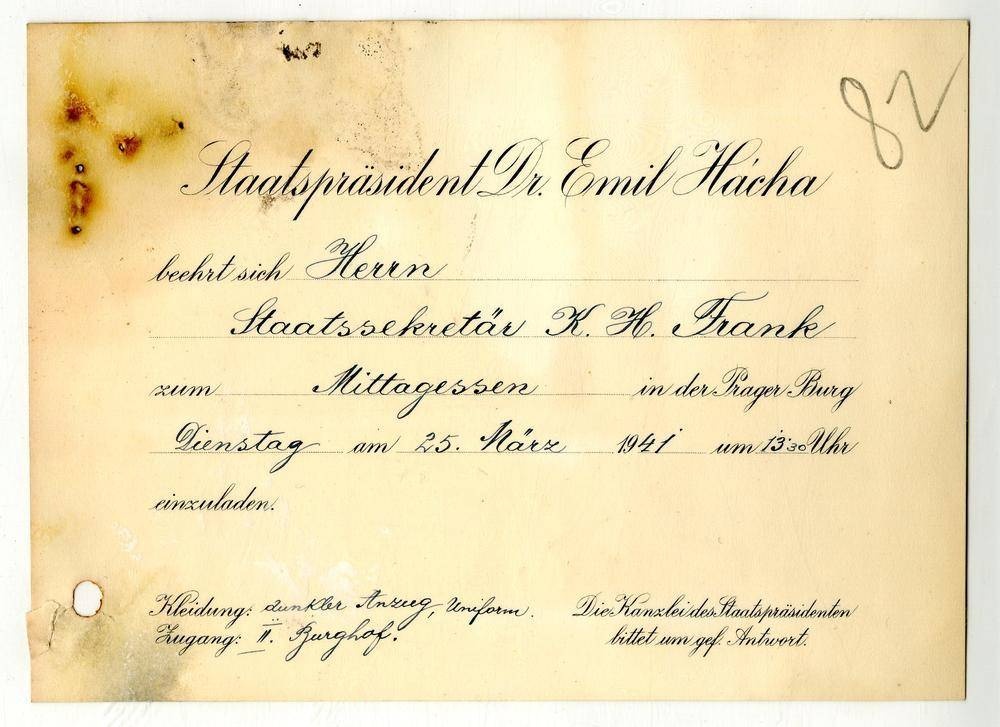 82
Staatspräsident Dr. Emil Hácha
beehrt sich Herrn
Staatssekretär K. H. Frank
zum Mittagessen in der Prager Burg
Dienstag am 25. März 1941 um 13·30 Uhr
einzuladen.
Kleidung: dunkler Anzug, Uniform. Die Kanzlei des Staatspräsidenten
Zugang: II. Burghof. bittet um gef. Antwort.